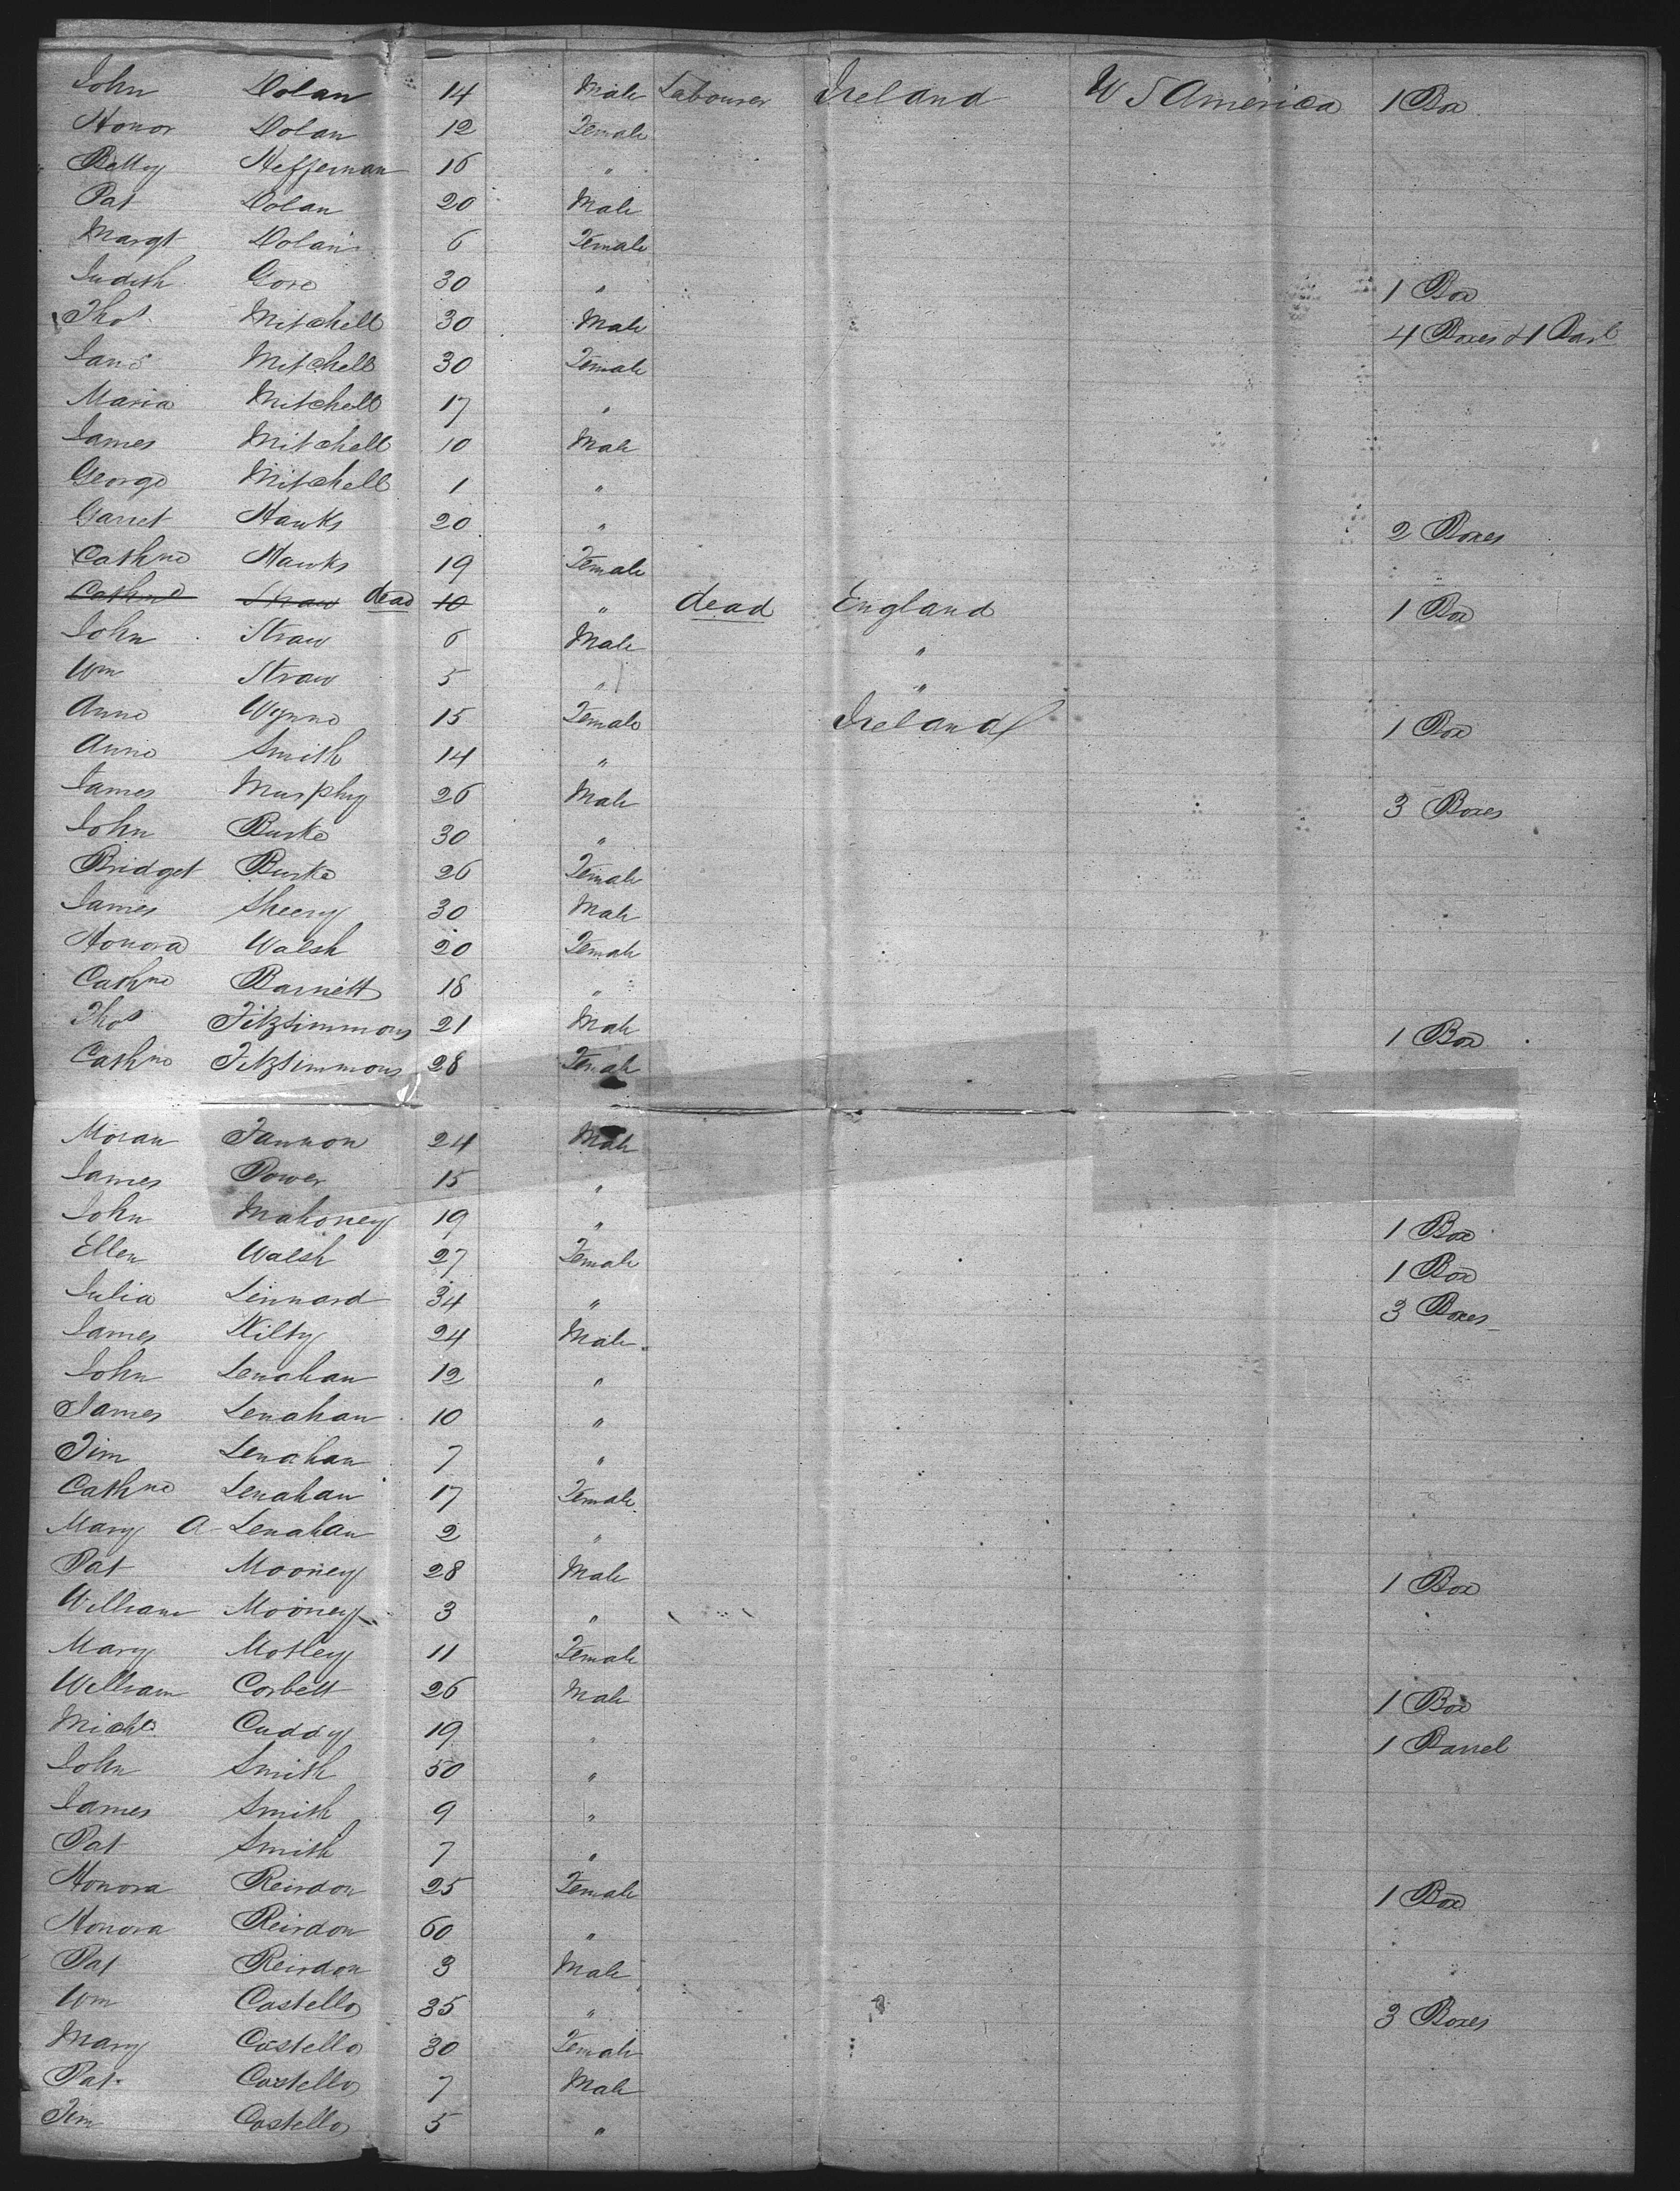 John Dolan 14 Male Labourer Ireland U S America 1 Box
Honor Dolan 12 Female
Betty Heffernan 16 "
Pat Dolan 20 Male
Margt Dolan 6 Female
Judith Gore 30 " 1 Box
Thos Mitchell 30 Male 4 Boxes & 1 Barl
Jane Mitchell 30 Female
Maria Mitchell 17 "
James Mitchell 10 Male
George Mitchell 1 "
Garret Hawks 20 " 2 Boxes
Cathne Hawks 19 Female
Cathne Straw dead 10 " dead England 1 Box
John Straw 6 Male "
Wm Straw 5 " "
Anne Wynne 15 Female Ireland 1 Box
Anne Smith 14 "
James Murphy 26 Male 3 Boxes
John Burke 30 "
Bridget Burke 26 Female
James Sheery 30 Male
Honora Walsh 20 Female
Cathne Barnett 18 "
Thos Fitzsimmons 21 Male 1 Box
Cathne Fitzsimmons 28 Female
Moran Fannon 24 Male
James Power 15 "
John Mahoney 19 " 1 Box
Ellen Walsh 27 Female 1 Box
Julia Lennard 34 " 3 Boxes
James Kilty 24 Male
John Lenahan 12 "
James Lenahan 10 "
Tim Lenahan 7 "
Cathne Lenahan 17 Female
Mary A Lenahan 2 "
Pat Mooney 28 Male 1 Box
William Mooney 3 "
Mary Motley 11 Female
William Corbett 26 Male 1 Box
Michl Cuddy 19 " 1 Barrel
John Smith 50 "
James Smith 9 "
Pat Smith 7 "
Honora Reirdon 25 Female 1 Box
Honora Reirdon 60 "
Pat Reirdon 3 Male
Wm Costello 35 " 3 Boxes
Mary Costello 30 Female
Pat Costello 7 Male
Tim Costello 5 "